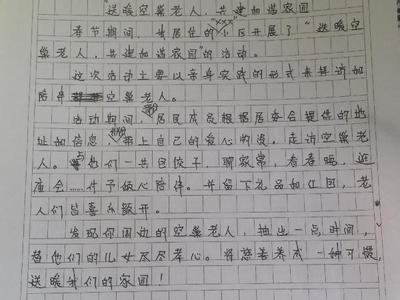 “送暖空巢老人，共建和谐家园
春节期间，我居住的"XXX"小区开展了“送暖空
巢老人，共建和谐家园”的活动。
这次活动主要以亲身实践的形式来拜访和
陪伴空巢老人。
活动期间，居民成员根据居委会提供的地
址和信息，带上自己的爱心物资，走访空巢老
人。与他们一共包饺子，聊家常，看春晚，逛
庙会……给予贴心陪伴。并留下礼品和红包，老
人们皆喜乐颜开。
发现你周边的空巢老人，抽出一点时间，
替他们的儿女尽尽孝心。将慈善养成一种习惯，
送暖我们的家园！